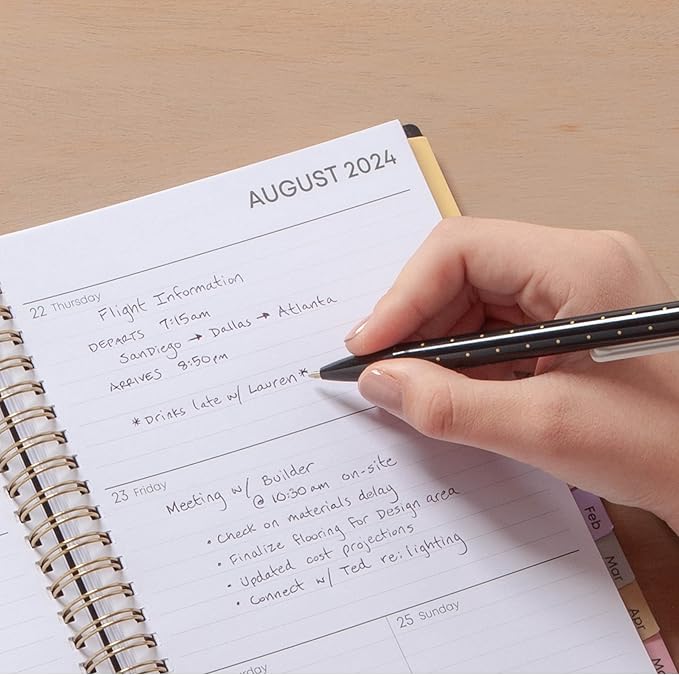 AUGUST 2024
22 Thursday
Flight Information
DEPARTS 7:15am
SanDiego → Dallas → Atlanta
ARRIVES 8:50pm
*Drinks late w/ Lauren*
23 Friday
Meeting w/ Builder
@ 10:30am on-site
• Check on materials delay
• Finalize flooring for Design area
• Updated cost projections
• Connect w/ Ted re: lighting
25 Sunday
Feb
Mar
Apr